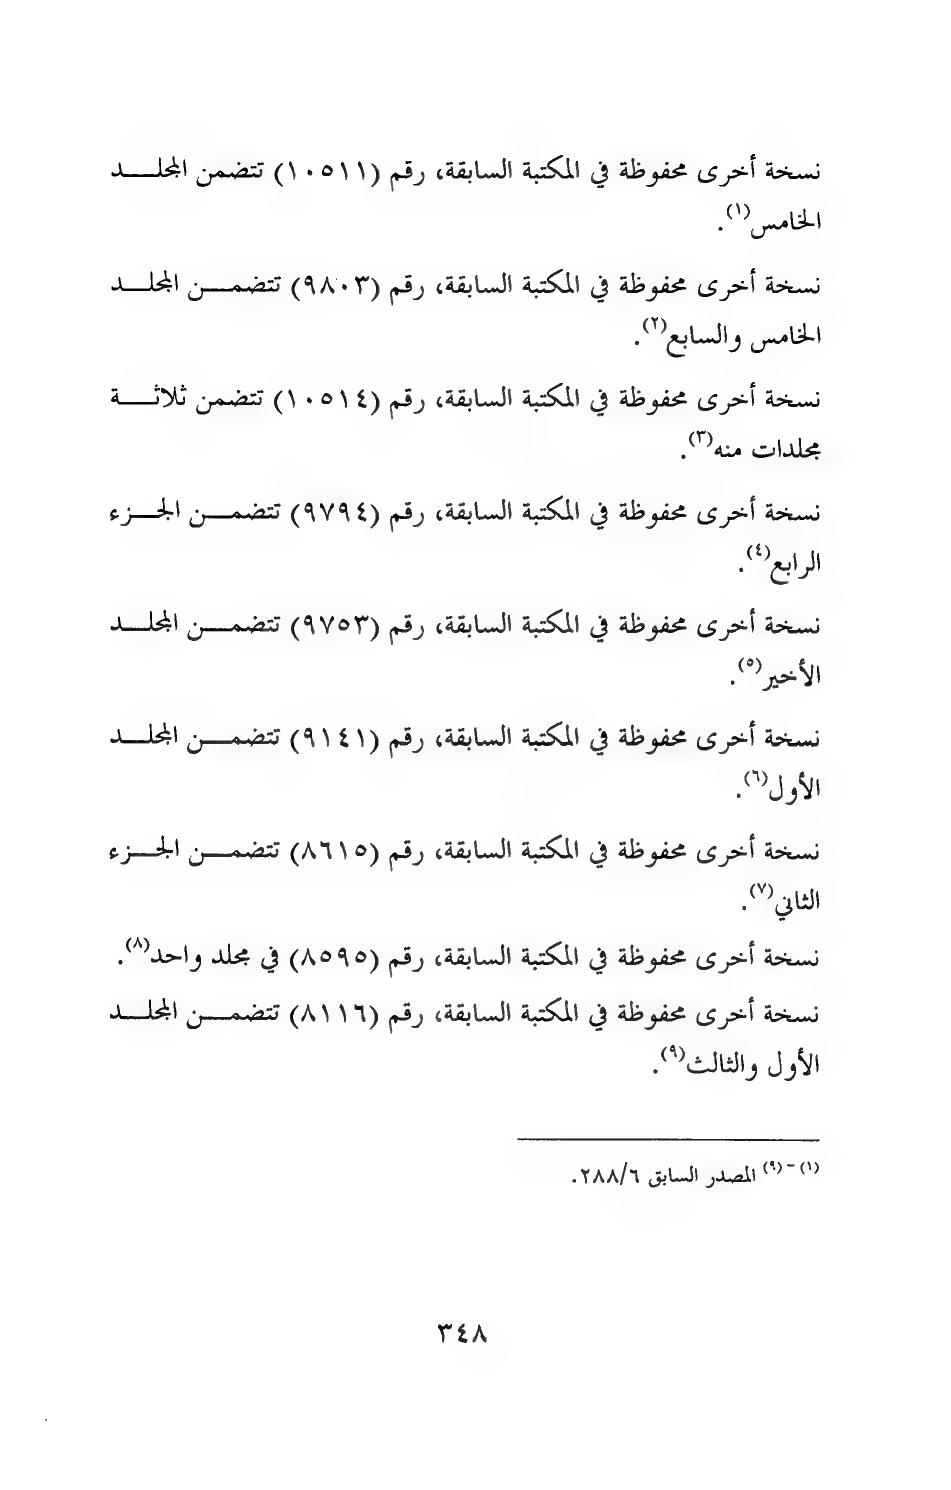 نسخة أخرى محفوظة في المكتبة السابقة، رقم (١٠٥١١) تتضمن المجلد
الخامس(١).
نسخة أخرى محفوظة في المكتبة السابقة، رقم (٩٨٠٣) تتضمن المجلد
الخامس والسابع(٢).
نسخة أخرى محفوظة في المكتبة السابقة، رقم (١٠٥١٤) تتضمن ثلاثة
مجلدات منه(٣).
نسخة أخرى محفوظة في المكتبة السابقة، رقم (٩٧٩٤) تتضمن الجزء
الرابع(٤).
نسخة أخرى محفوظة في المكتبة السابقة، رقم (٩٧٥٣) تتضمن المجلد
الأخير(٥).
نسخة أخرى محفوظة في المكتبة السابقة، رقم (٩١٤١) تتضمن المجلد
الأول(٦).
نسخة أخرى محفوظة في المكتبة السابقة، رقم (٨٦١٥) تتضمن الجزء
الثاني(٧).
نسخة أخرى محفوظة في المكتبة السابقة، رقم (٨٥٩٥) في مجلد واحد(٨).
نسخة أخرى محفوظة في المكتبة السابقة، رقم (٨١١٦) تتضمن المجلد
الأول والثالث(٩).
(١)-(٩) المصدر السابق ٢٨٨/٦.
٣٤٨